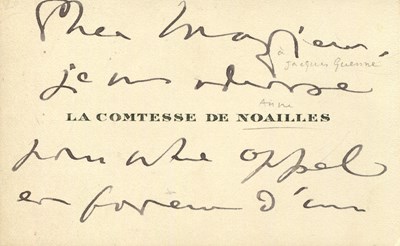 Cher Monsieur,
à
Jacques Guenne
je vous adresse
Anne
LA COMTESSE DE NOAILLES
pour votre appel
en faveur d'un